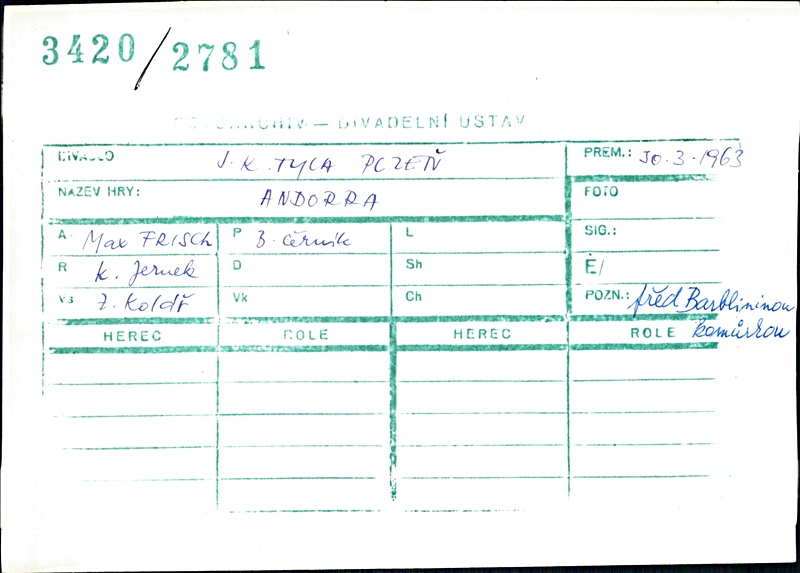 3420/2781
FOTOARCHIV — DIVADELNÍ ÚSTAV
DIVADLO J. K. TYLA PLZEŇ PREM.: 30.3.1963
NÁZEV HRY: ANDORRA FOTO
A Max FRISCH P B. Černík L SIG.:
R K. Jernek D Sh Ë/
Vs Z. Kolář Vk Ch POZN.: před Barblininou
HEREC ROLE HEREC ROLE komůrkou